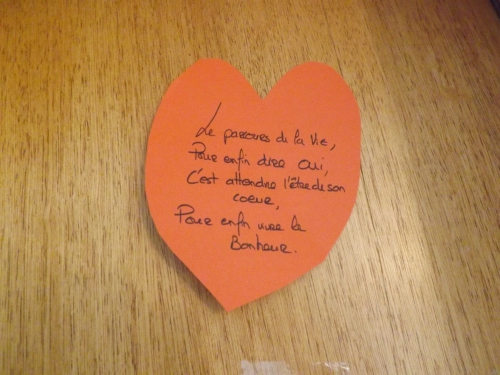 Le parcours de la Vie,
Pour enfin dire oui,
C'est attendre l'être de son
coeur,
Pour enfin vivre le
Bonheur.